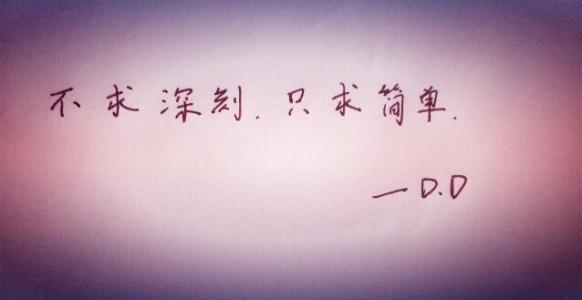 不求深刻.只求简单.
—D.D